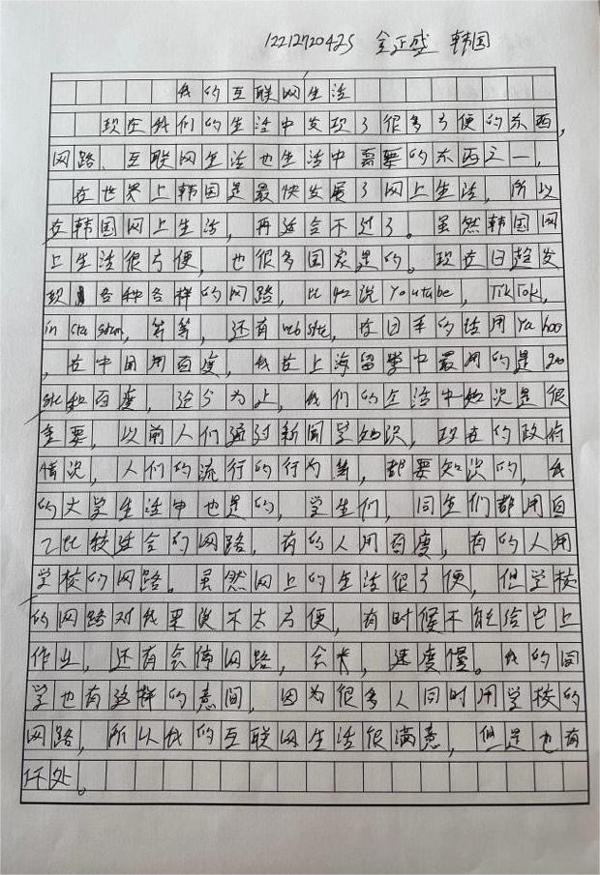 12212720425 金正盛 韩国
我的互联网生活
现在我们的生活中发现了很多方便的东西,
网路、互联网生活也生活中需要的东西之一,
在世界上韩国是最快发展了网上生活, 所以
在韩国网上生活, 再适合不过了。虽然韩国网
上生活很方便, 也很多国家是的。现在日趋发
现 各种各样的网路, 比如说Youtube, TikTok,
等等, 还有website, 在日本的话用Yahoo
, 在中国用百度, 我在上海留学中最用的是goo
gle和百度, 我们的生活中知识是很
重要, 以前人们通过新闻学知识, 现在的政府
情况, 人们的流行的行为等, 都要知识的, 我
的大学生活中也是的, 学生们, 同生们都用自
己比较适合的网路, 有的人用百度, 有的人用
学校的网路。虽然网上的生活很方便, 但学校
的网路对我来说不太方便, 有时候不能给它上
作业, 还有会停网路, 速度慢。我的同
学也有这样的意间, 因为很多人同时用学校的
网路, 所以我的互联网生活很满意, 但是也有
坏处。